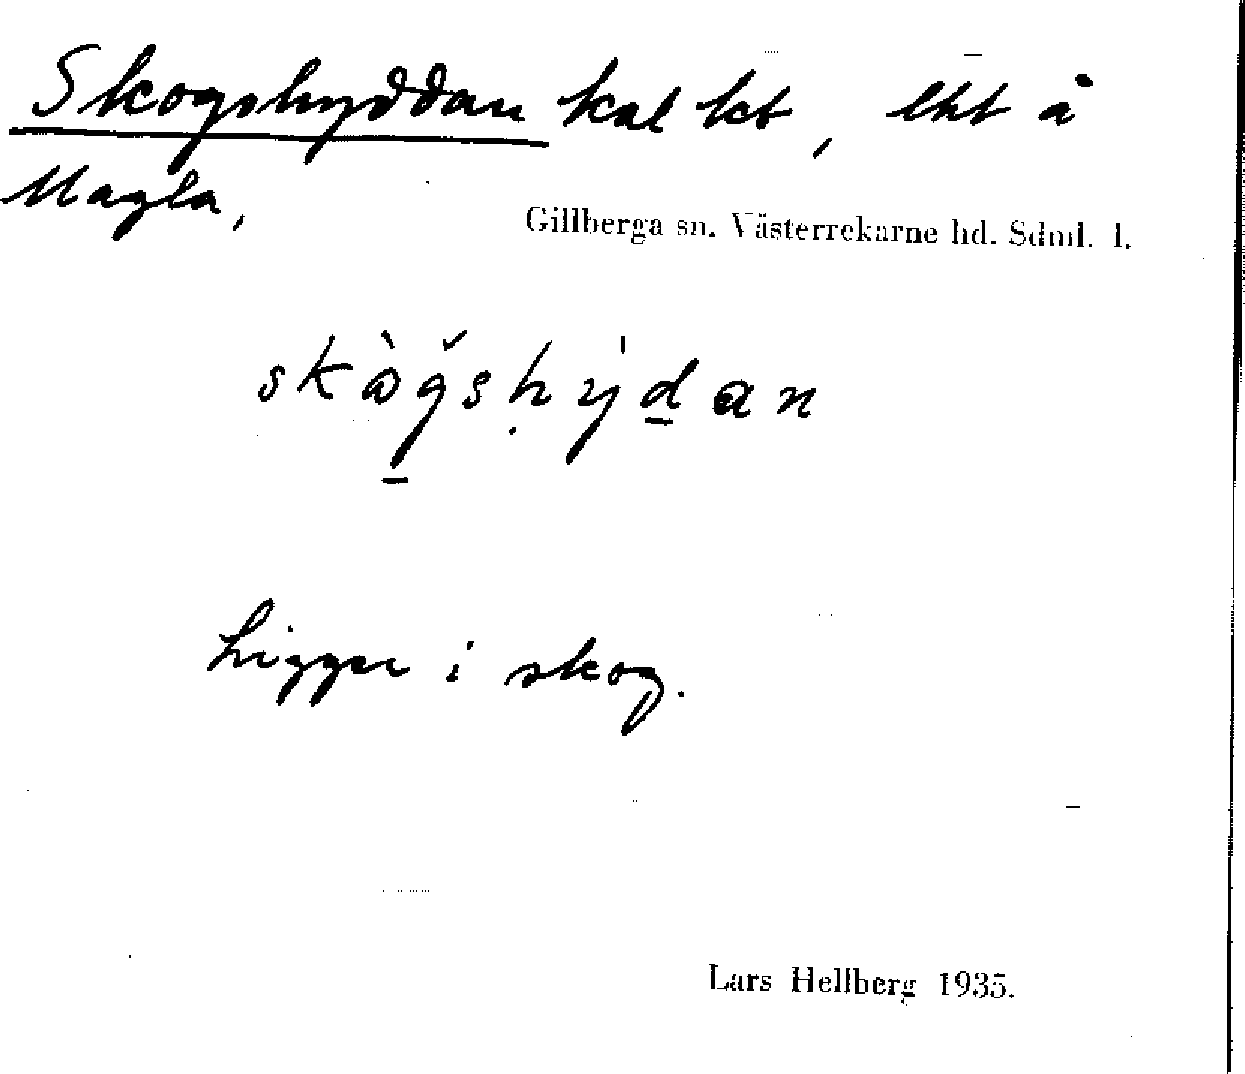 Skogshyddan kal kt, lht å
Magla,
Gillberga sn. Västerrekarne hd. Sdml. l.
skògshýdan
Ligger i skog.
Lars Hellberg 1935.